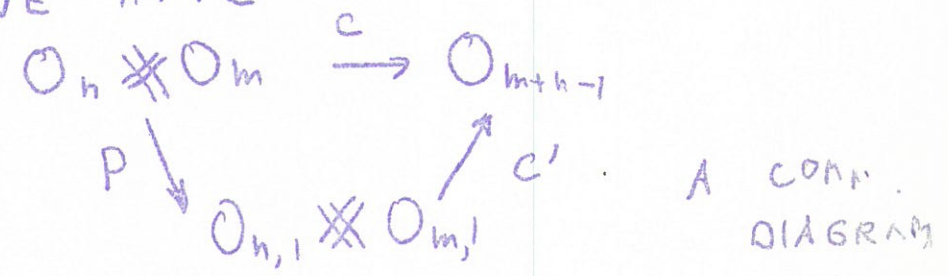 C
O_n × O_m → O_{m+n-1}
P
C'
A COMM.
DIAGRAM
O_{n,1} × O_{m,1}